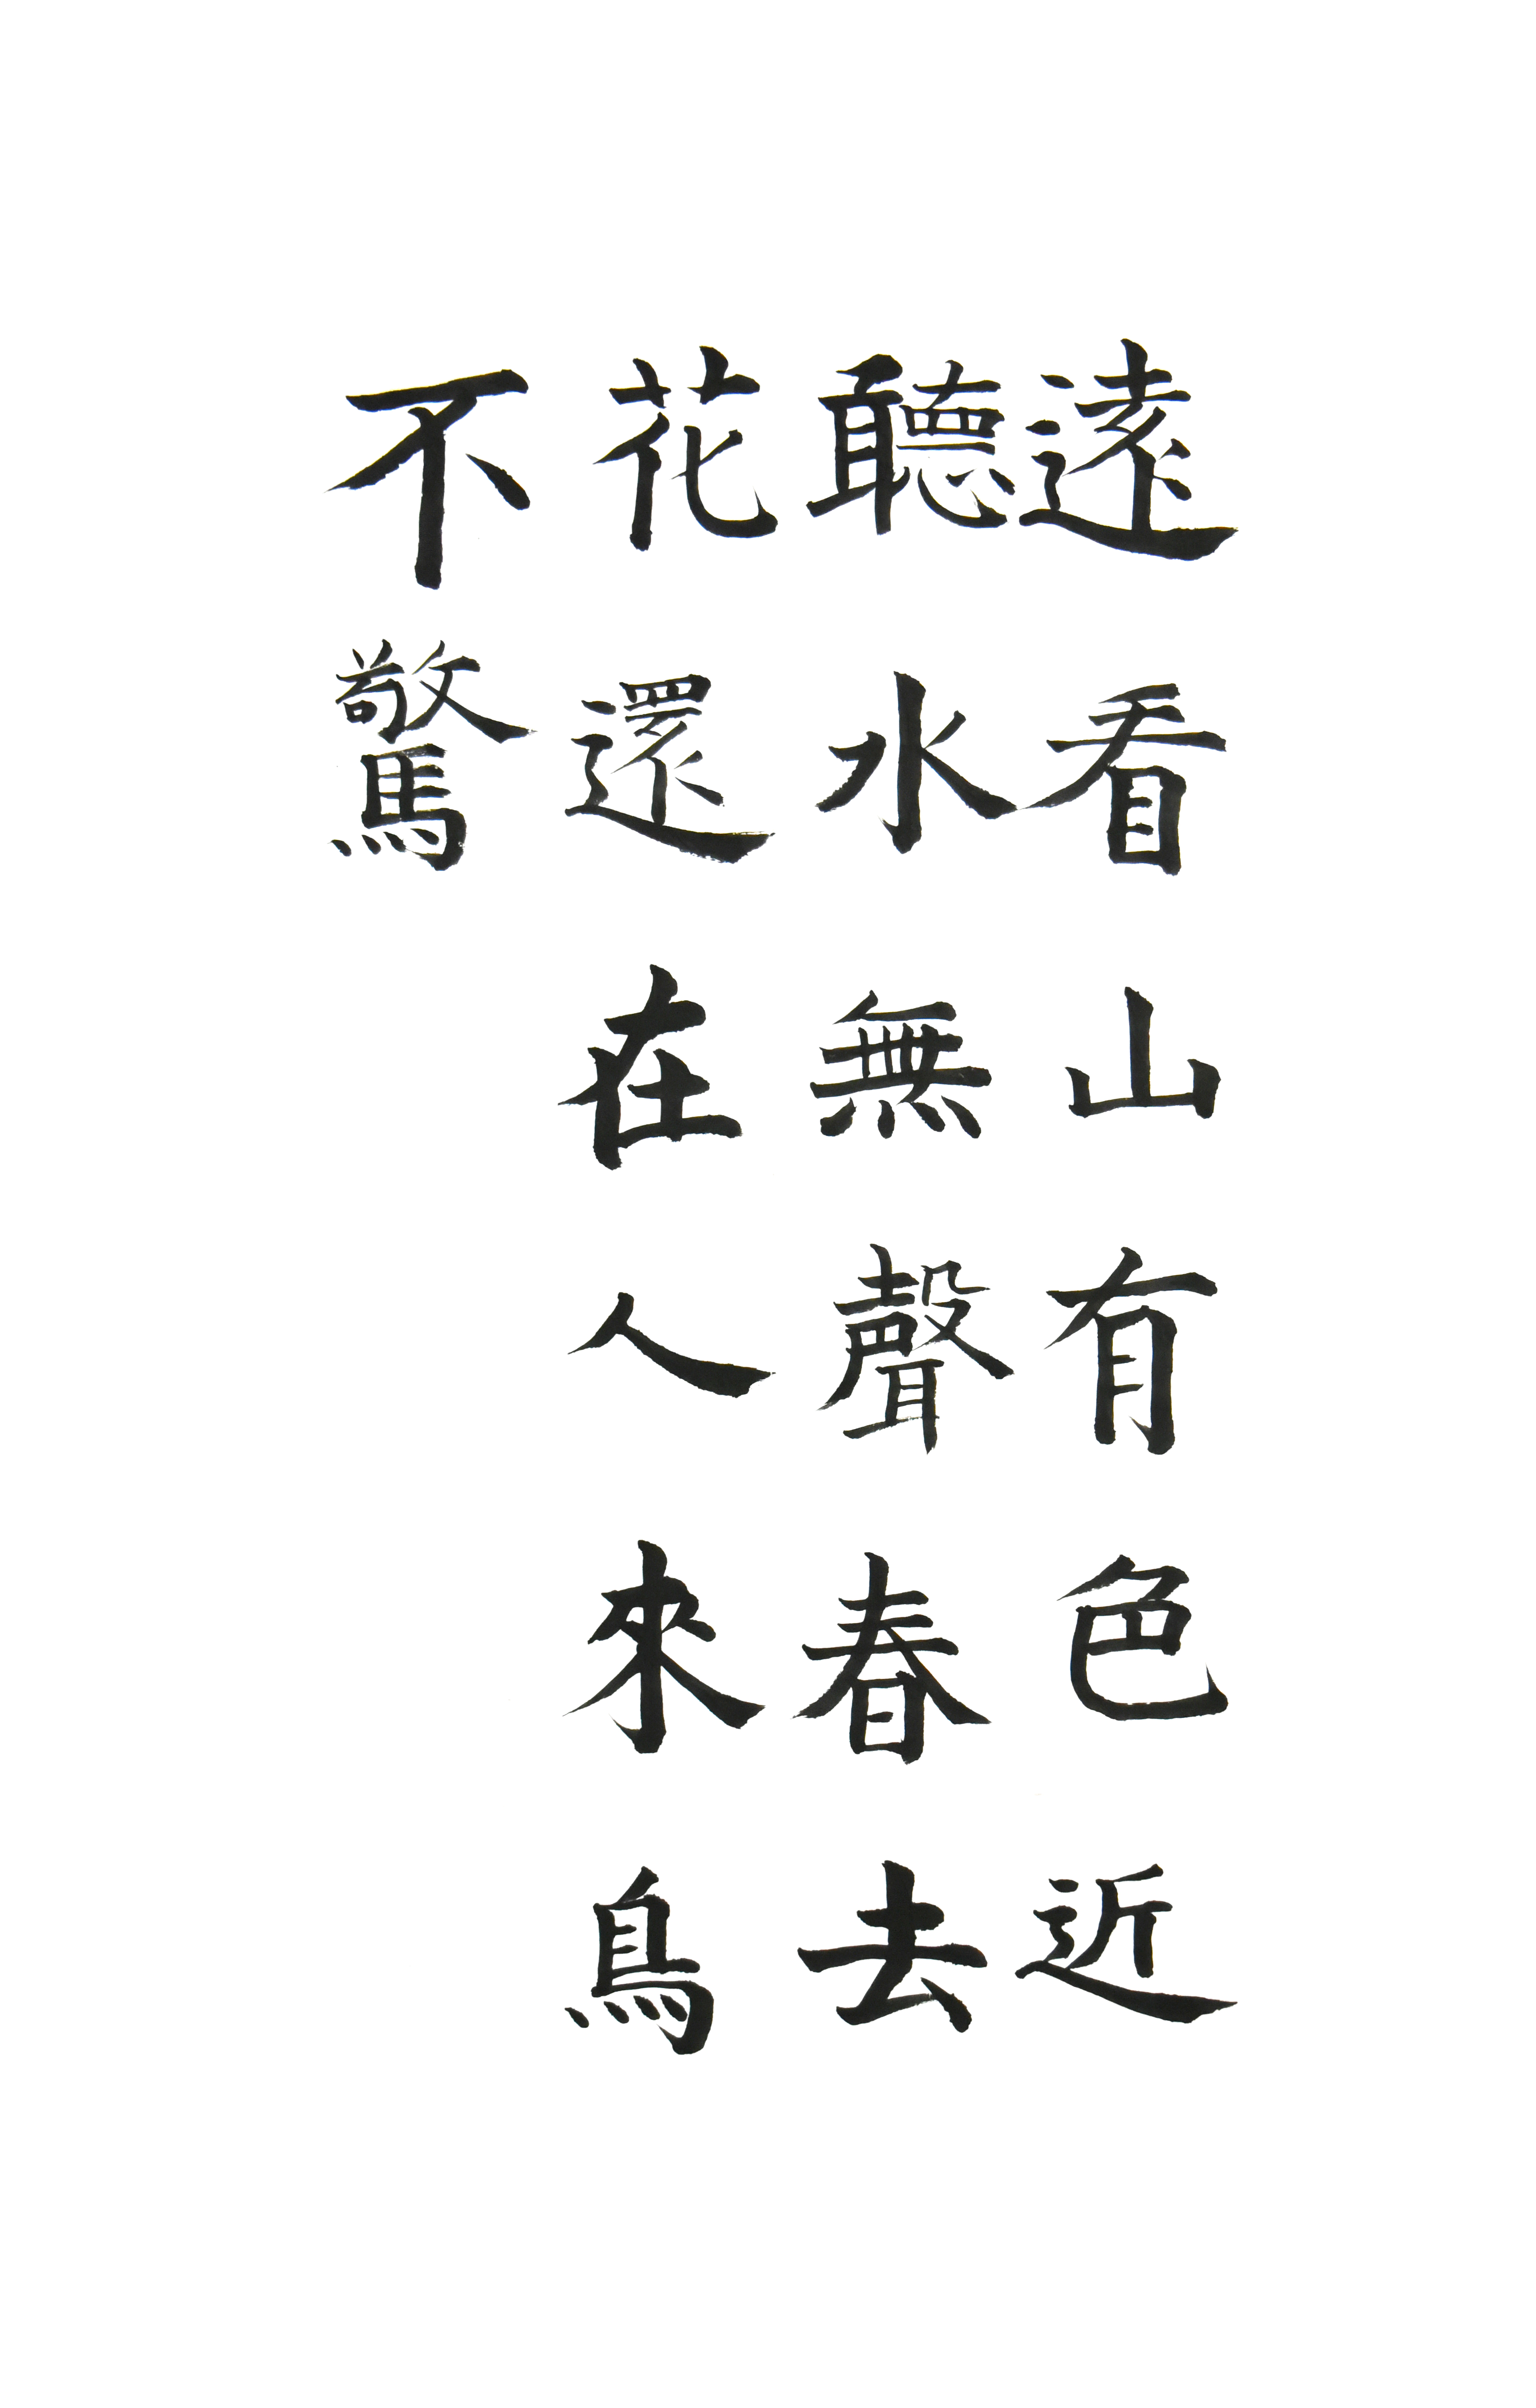 遠看山有色近
聽水無聲春去
花還在人來鳥
不驚